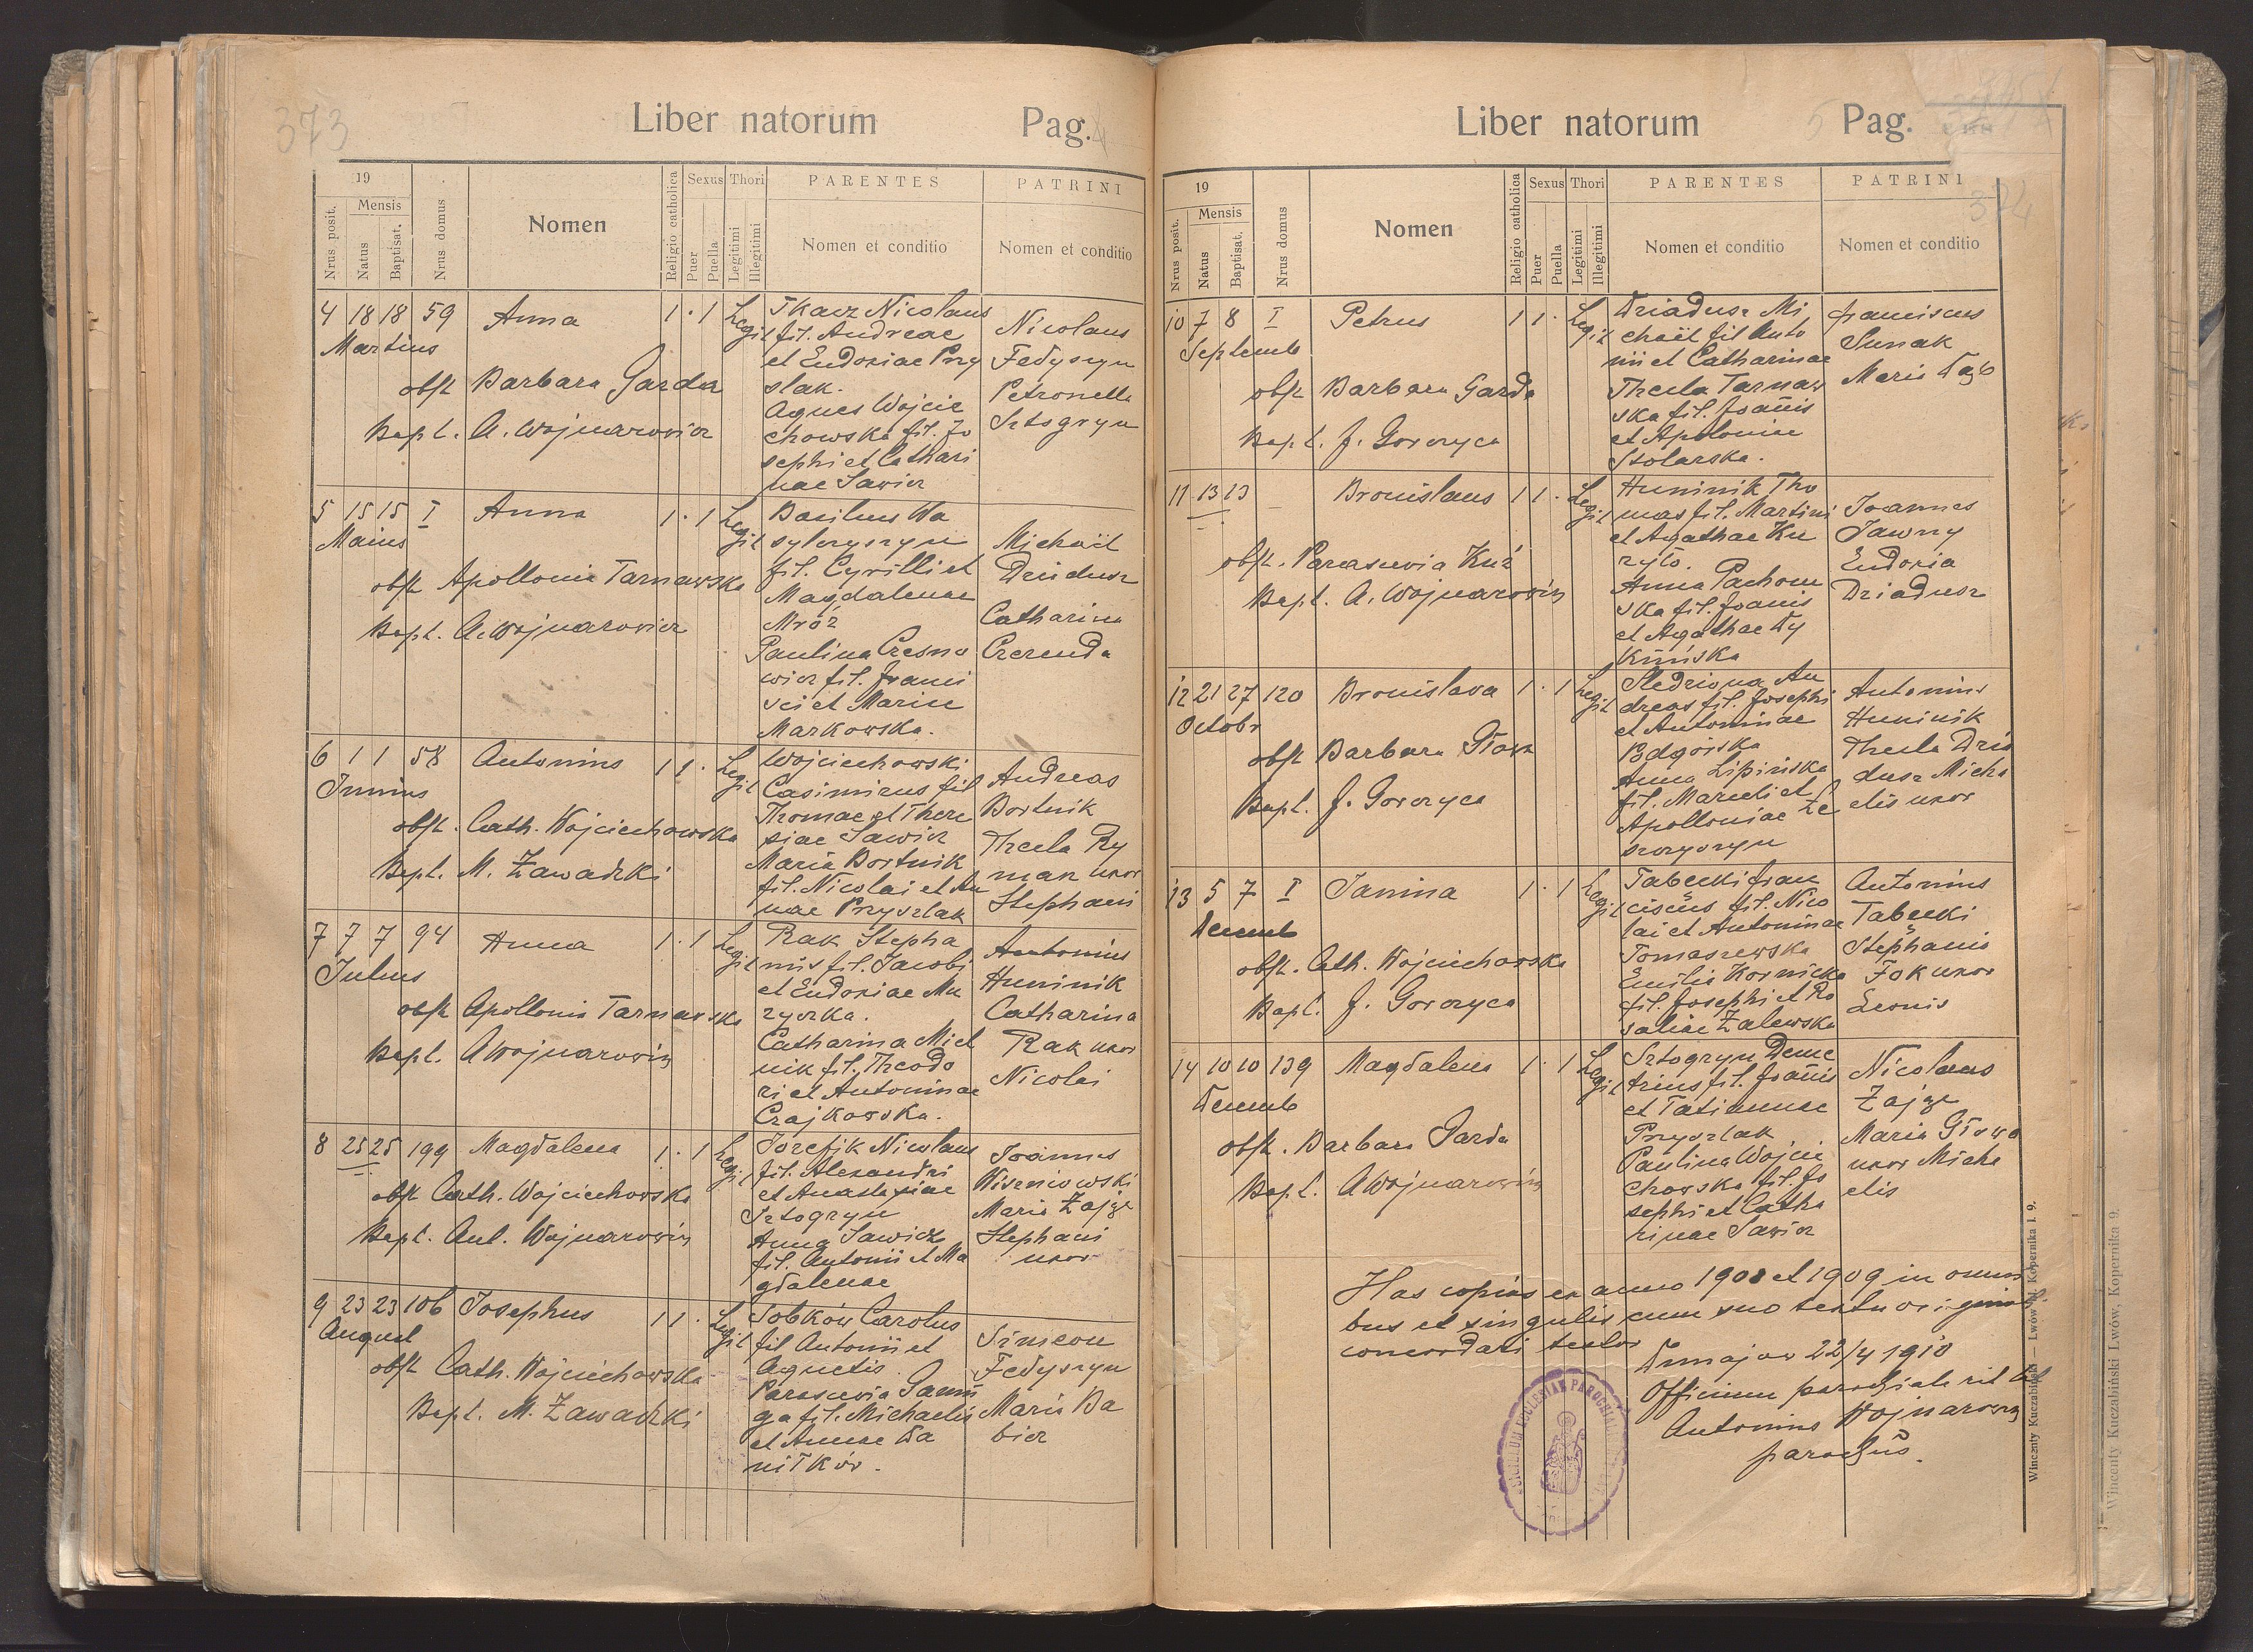 373
Liber natorum Pag. 4
19
Mensis
Nrus posit.
Natus
Baptisat.
Nrus domus
Nomen
Religio catholica
Sexus
Puer
Puella
Thori
Legitimi
Illegitimi
PARENTES
Nomen et conditio
PATRINI
Nomen et conditio
4 18 18 59 Anna 1 · 1 Legit
Martius
obst Barbara Garda
Bapt. A. Wojnarowicz
Tkacz Nicolaus
fil. Andreae
et Eudoxiae Przy
slak.
Agnes Wojcie
chowska fil. Jo
sephi et Cathari
nae Sawicz
Nicolaus
Fedyszyn
Petronella
Sztogryn
5 15 15 I Anna 1 · 1 Legit
Maius
obst Apollonia Tarnawska
Bapt. A. Wojnarowicz
Basilius Wa
sylczyszyn
fil. Cyrilli et
Magdalenae
Mróz
Paulina Czesno
wicz fil. Franci
sci et Mariae
Markowska.
Michaël
Dziadusz
Catharina
Czerenda
6 1 1 58 Antonius 1 1 · Legit
Junius
obst. Cath. Wojciechowska
Bapt. M. Zawadzki
Wojciechowski
Casimirus fil
Thomae et There
siae Sawicz
Maria Bortnik
fil. Nicolai et An
nae Przyszlak
Andreas
Bortnik
Thecla Ry
mar uxor
Stephani
7 7 7 94 Anna 1 · 1 Legit
Julius
obst Apollonia Tarnawska
Bapt. A Wojnarowicz
Rak Stepha
nus fil. Jacobi
et Eudoxiae Mu
zyczka.
Catharina Miel
nik fil. Theodo
ri et Antoninae
Czajkowska.
Antonius
Huninik
Catharina
Rak uxor
Nicolai
8 25 25 199 Magdalena 1 · 1 Legit
obst Cath. Wojciechowska
Bapt. Ant. Wojnarowicz
Jozefik Nicolaus
fil. Alexandri
et Anastasiae
Sztogryn
Anna Sawicz
fil. Antonii et Ma
gdalenae
Joannes
Wiszniowski
Maria Zając
Stephani
uxor
9 23 23 106 Josephus 1 1 · Legit
August
obst Cath. Wojciechowska
Bapt. M. Zawadzki
Sobków Carolus
fil Antonii et
Agnetis
Parascevia
ga fil. Michaelis
et Annae Da
niłków.
Simeon
Fedyszyn
Maria Ba
bicz
Liber natorum 5 Pag.
374
19
Mensis
Nrus posit.
Natus
Baptisat.
Nrus domus
Nomen
Religio catholica
Sexus
Puer
Puella
Thori
Legitimi
Illegitimi
PARENTES
Nomen et conditio
PATRINI
Nomen et conditio
10 7 8 I Petrus 1 1 · Legit
Septemb
obst Barbara Garda
Bapt. J. Gorczyca
Dziadusz Mi
chaël fil Anto
nii et Catharinae
Thecla Tarnaw
ska fil. Joañis
et Apoloniae
Stolarska.
Franciscus
Sunak
Maria
11 13 13 Bronislaus 1 1 · Legit
obst. Parascevia Kuź
Bapt. A. Wojnarowicz
Huninik Tho
mas fil. Martini
et Agathae Ku
ryło.
Anna Pachow
ska fil. Joanis
et Agathae Dy
kińska
Joannes
Jawny
Eudoxia
Dziadusz
12 21 27 120 Bronislava 1 · 1 Legit
Octobr
obst Barbara Głowa
Bapt. J. Gorczyca
Sledziona An
dreas fil. Josephi
et Antoninae
Podgórska
Anna Lipińska
fil. Marceli et
Apolloniae Le
szczyszyn
Antonius
Huninik
Thecla Dzia
dusz Micha
elis uxor
13 5 7 I Janina 1 · 1 Legit
Decemb
obst. Cath. Wojciechowska
Bapt. J. Gorczyca
Tabęcki Fran
ciscus fil. Nico
lai et Antoninae
Tomaszewska
Emilia Kornicka
fil. Josephi et Ro
saliae Zalewska
Antonius
Tabęcki
Stephania
Fok uxor
Leonis
14 10 10 139 Magdalena 1 · 1 Legit
Decemb
obst. Barbara Garda
Bapt. A Wojnarowicz
Sztogryn Deme
trius fil. Joañis
et Tatiannae
Przyszlak
Paulina Wojcie
chowska fil. Jo
sephi et Catha
rinae Sawicz
Nicolaus
Zając
Maria Głowa
uxor Micha
elis
Has copias ex anno 1908 et 1909 in omni
bus et singulis cum suo textu originali
concordari testor
Dunajow 22/4 1910
Officium parochiale rit lat
Antonius Wojnarowicz
parochus.
Wincenty Kuczabiński — Lwów ul. Kopernika l. 9.
Wincenty Kuczabiński Lwów, Kopernika 9.